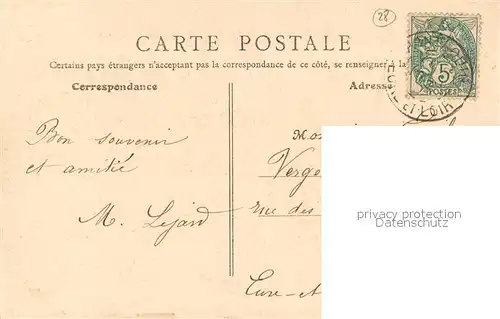 28
CARTE POSTALE
Certains pays étrangers n'acceptant pas la correspondance de ce côté, se renseigner à la
Correspondance
Adresse
5
POSTES
EURE-ET-LOIR
Bon souvenir
et amitié
M. Lejard
Verge
rue des
Eure-et-
privacy protection
watermark